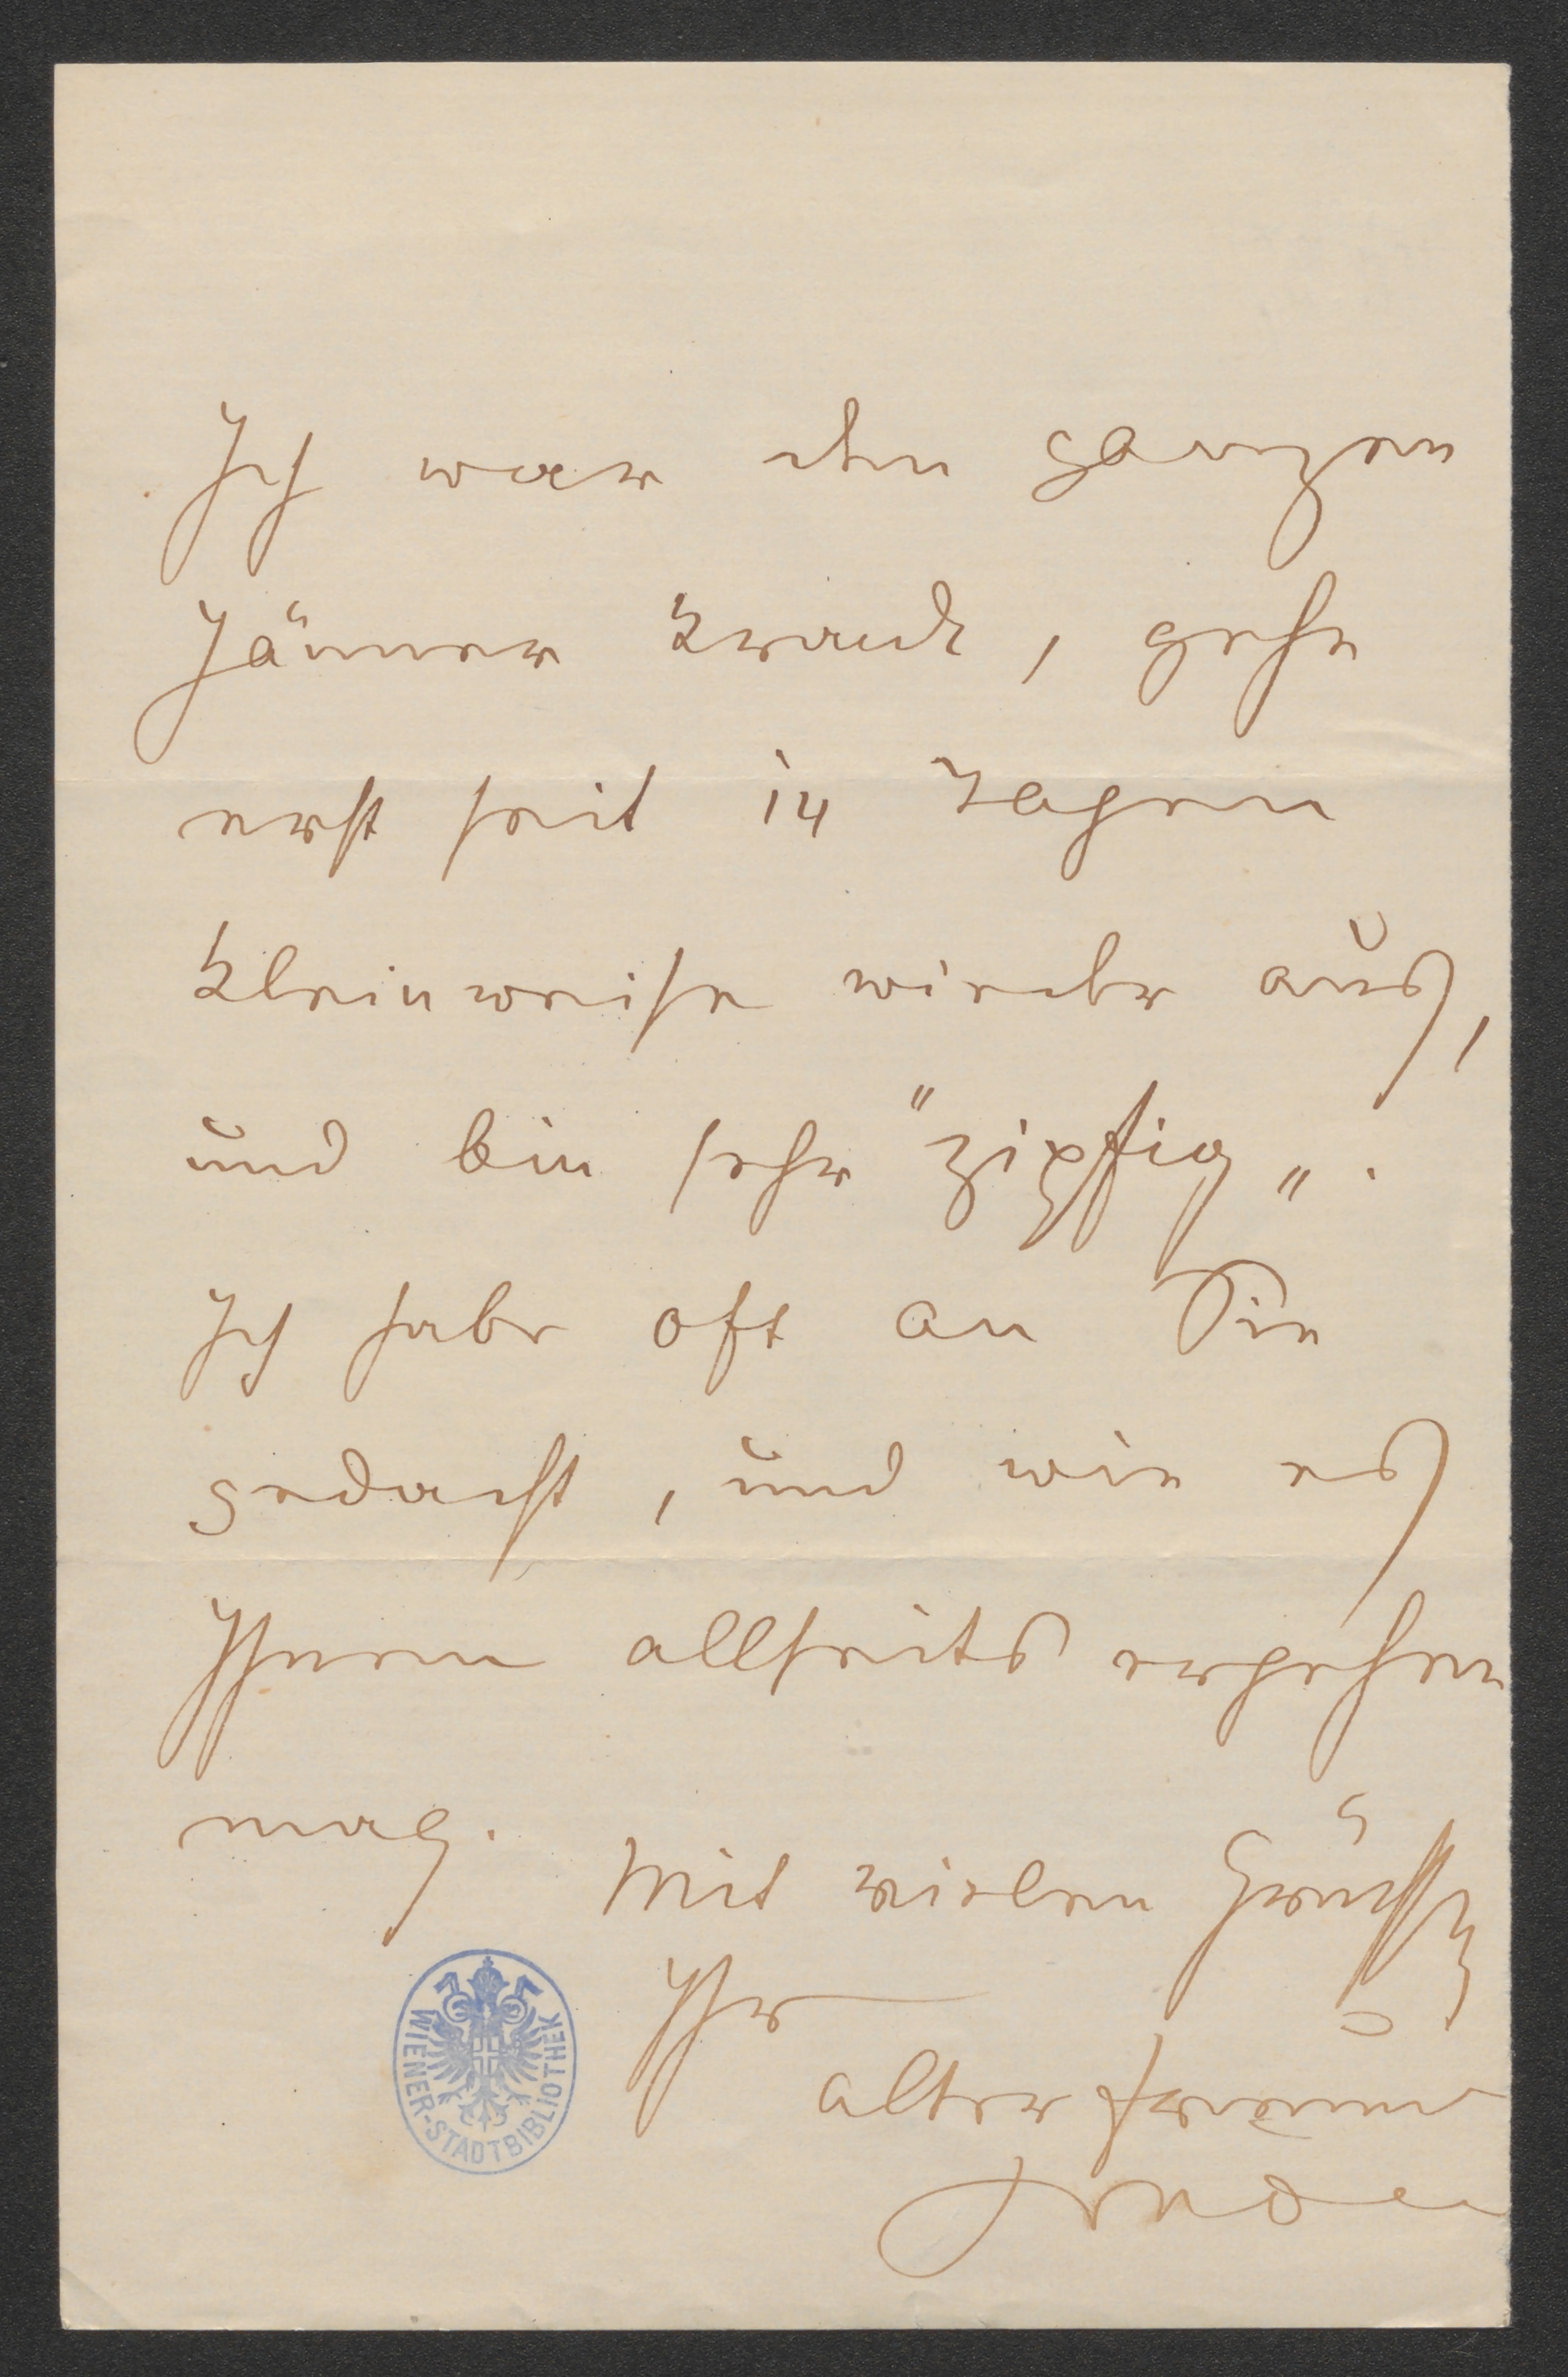 Ich war den ganzen
Jänner krank, gehe
erst seit 14 Tagen
kleinweise wieder aus,
und bin sehr "zipfig".
Ich habe oft an Sie
gedacht, und wie es
Ihnen allseits ergehen
mag.
Mit vielen Grüssen
Ihr
alter
WIENER-STADTBIBLIOTHEK